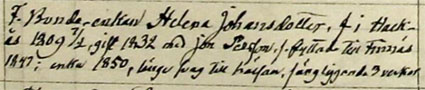 F. Bonde-enkan Helena Johansdotter, f. i Hack-
ås 1809 7/2, gift 1832 med Jon Persson, f. flyttade till
1847; enka 1850, länge svag till hälsan, sängliggande 3 veckor